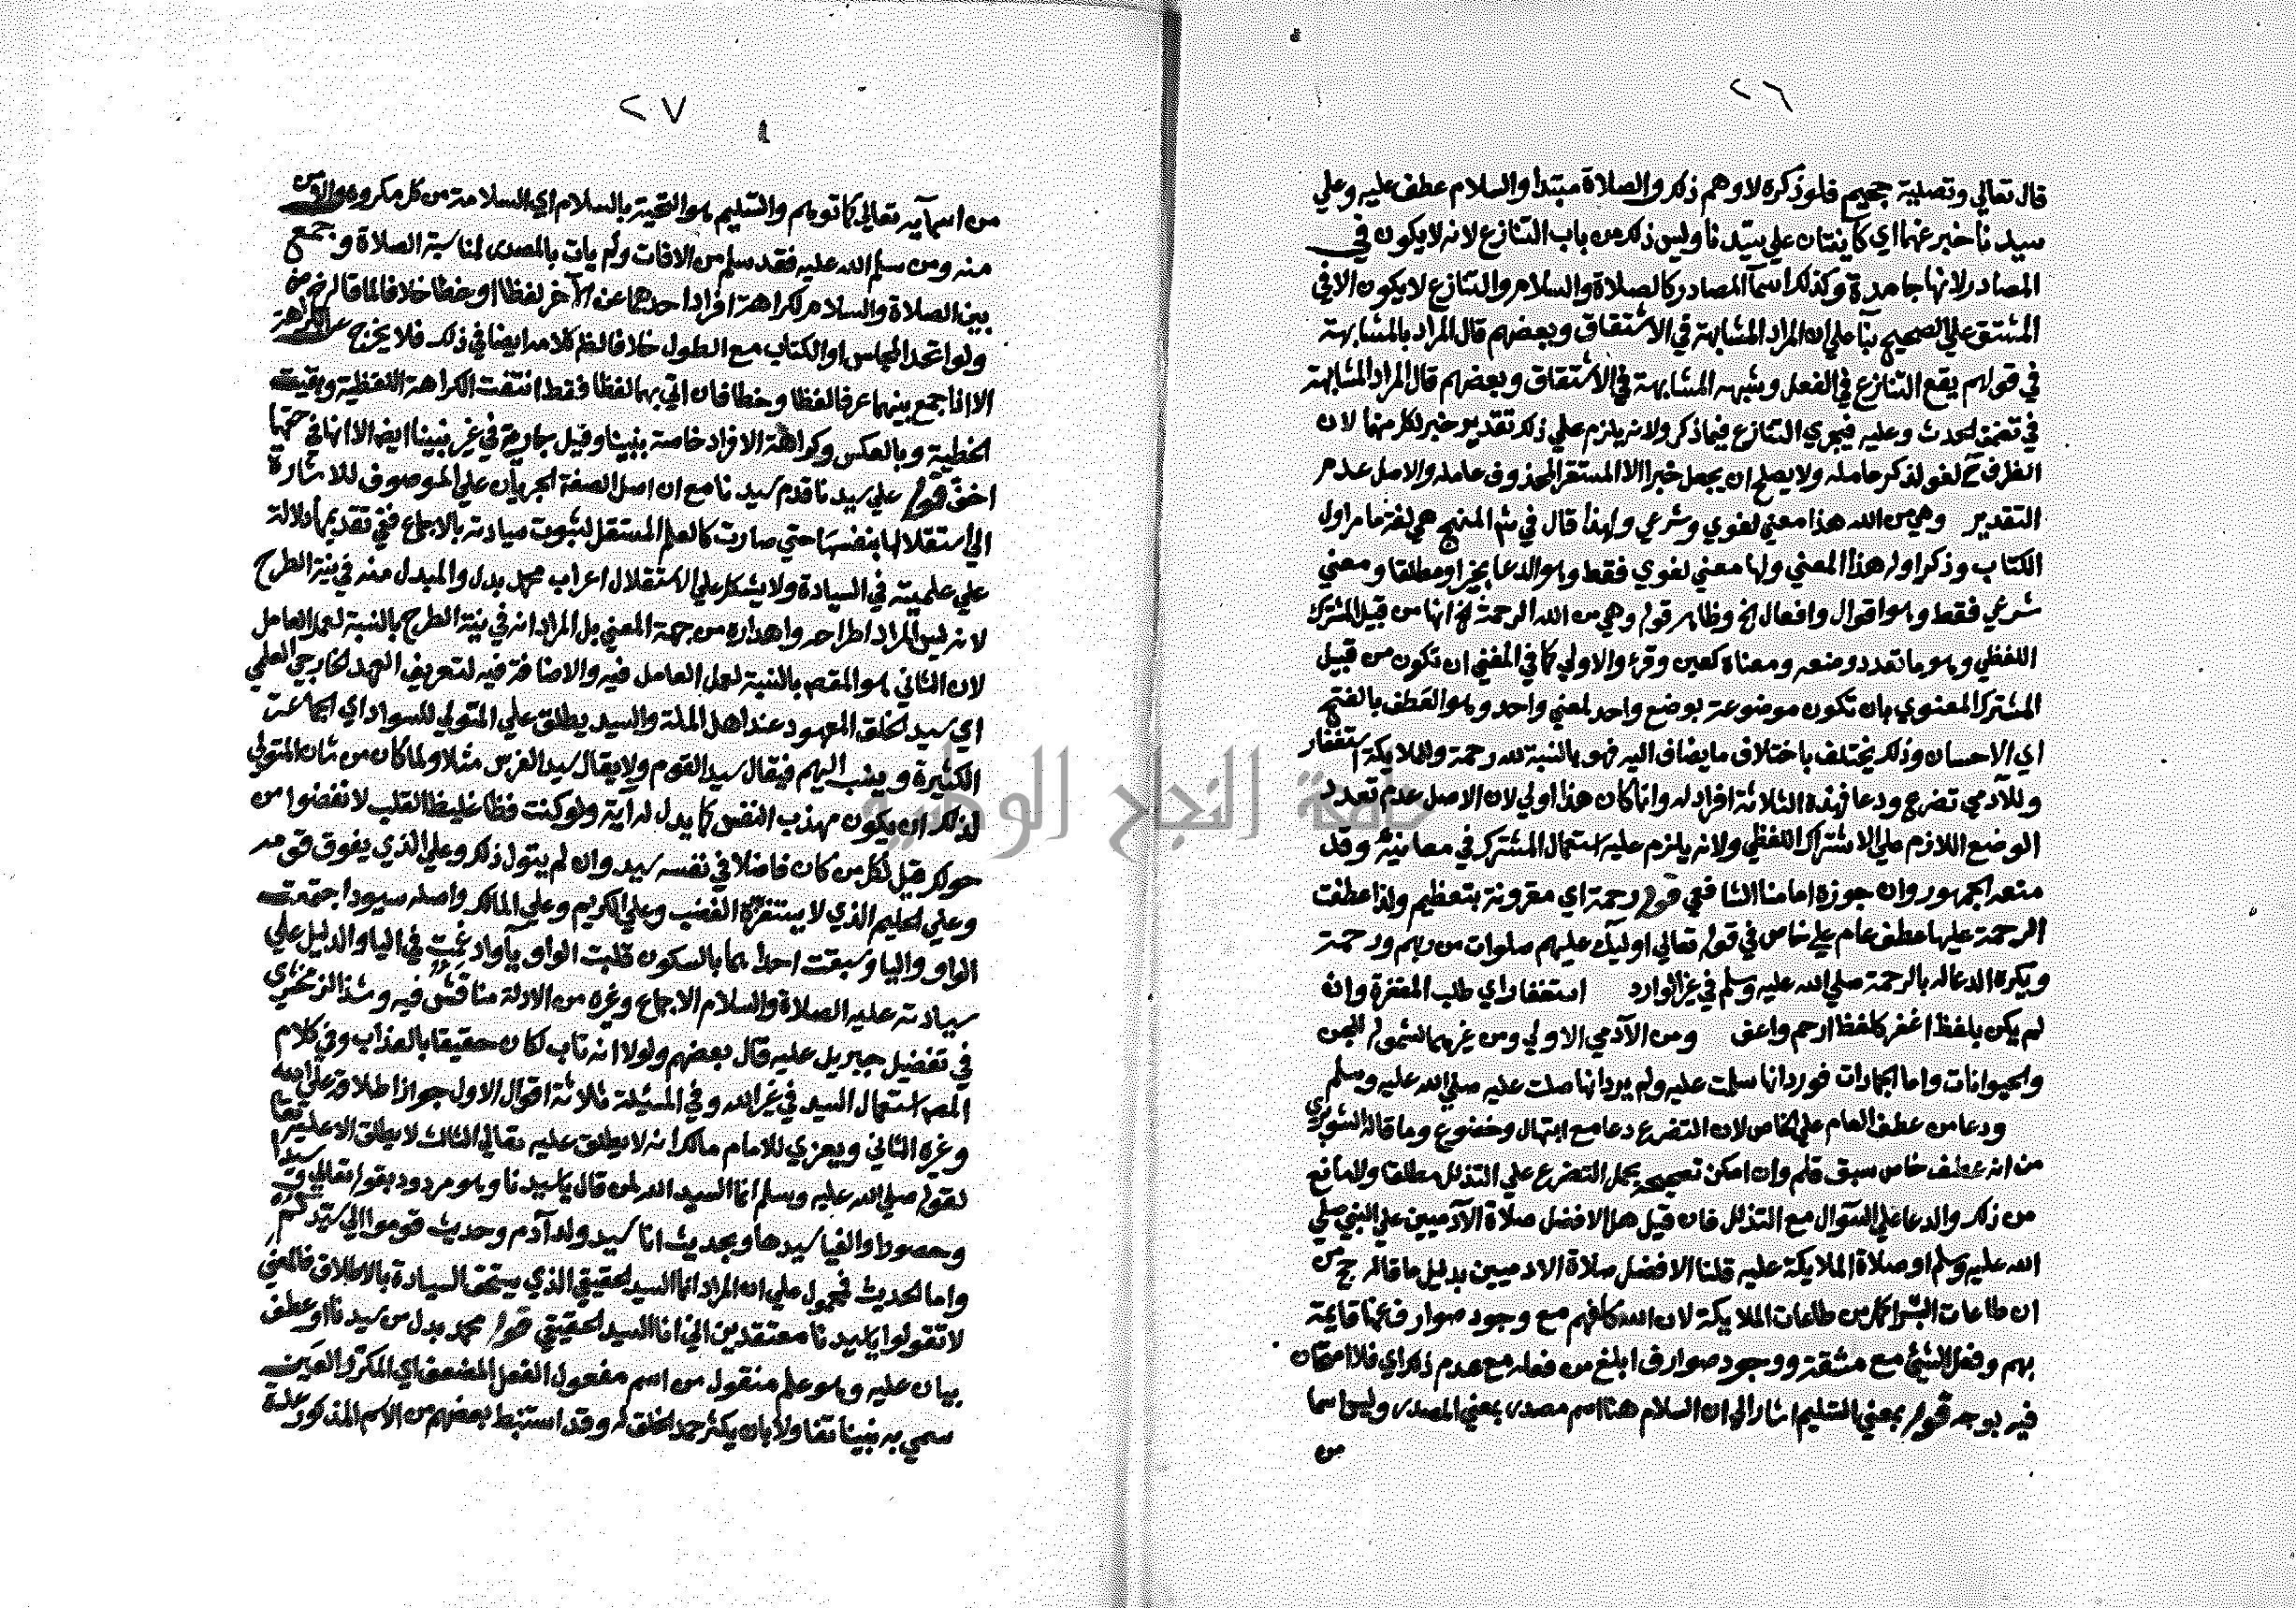 ٢٦
قال تعالي وتصلية جحيم فلو ذكره لاوهم ذكر والصلاة مبتدا والسلام عطف عليه وعلي
سيدنا خبر عنهما اي كائنتان علي سيدنا وليس ذلك من باب التنازع لانه لا يكون في
المصادر لانها جامدة وكذلك اسما المصادر كالصلاة والسلام والتنازع لا يكون الا في
المشتق علي الصحيح بنآ علي ان المراد المشابهة في الاشتقاق وبعضهم قال المراد بالمشابهة
في قولهم يقع التنازع في الفعل وشبهه المشابهة في الاشتقاق وبعضهم قال المراد المشابهة
في تضمن الحدث وعليه فيجري التنازع فيما ذكر ولانه يلزم علي ذلك تقدير خبر لكل منهما لان
الظرف ح لغو لذكر عامله ولا يصلح ان يجعل خبرا الا المستقر المحذوف عامله والاصل عدم
التقدير وهي من الله هذا معني لغوي وشرعي ولهذا قال في شم المنهج هي لغة ما مر اول
الكتاب وذكر اوله هذا المعني ولها معني لغوي فقط وهو الدعا بخير او مطلقا ومعني
شرعي فقط وهو اقوال وافعال الخ وظاهر قوله وهي من الله الرحمة الخ انها من قبيل المشترك
اللفظي وهو ما تعدد وضعه ومعناه كعين وقرء والاولي كما في المغني ان تكون من قبيل
المشترك المعنوي بان تكون موضوعة بوضع واحد لمعني واحد وهو العطف بالفتح
اي الاحسان وذلك يختلف باختلاف ما يضاف اليه فهو بالنسبة لله رحمة وللملايكة استغفار
وللآدمي تضرع ودعا فهذه الثلاثة افراد له وانما كان هذا اولي لان الاصل عدم تعدد
الوضع اللازم علي الاشتراك اللفظي ولانه يلزم عليه استعمال المشترك في معانيه وقد
منعه الجمهور وان جوزه امامنا الشافعي قوله رحمة اي مقرونة بتعظيم ولذا عطفت
الرحمة عليها عطف عام علي خاص في قوله تعالي اوليك عليهم صلوات من ربهم ورحمة
ويكره الدعا له بالرحمة صلي الله عليه وسلم في غير الوارد استغفار اي طلب المغفرة وان
لم يكن بلفظ اغفر كلفظ ارحم واعف ومن الآدمي الاولي ومن غيرهما لشموله الجن
والحيوانات واما الجمادات فورد انها سلمت عليه ولم يرد انها صلت عليه صلي الله عليه وسلم
ودعا من عطف العام علي الخاص لان التضرع دعا مع ابتهال وخضوع وما قاله الشوبري
من انه عطف خاص سبق قلم وان امكن تصحيحه بجعل التضرع علي التذلل مطلقا ولا مانع
من ذلك والدعا علي السؤال مع التذلل فان قيل هل الافضل صلاة الآدميين علي النبي صلي
الله عليه وسلم او صلاة الملايكة عليه قلنا الافضل صلاة الادميين بدليل ما قاله حج من
ان طاعات البشر اكمل من طاعات الملايكة لان الله كلفهم مع وجود صوارف عنها قايمة
بهم وفعل الشئ مع مشقة ووجود صوارف ابلغ من فعله مع عدم ذلك اي فلا امتحان
فيه بوجه قوله بمعني التسليم اشار الي ان السلام هنا اسم مصدر بمعني المصدر وليس اسما
من
٢٧
من اسمآيه تعالي كما توهم والتسليم هو التحية بالسلام اي السلامة من كل مكروه والامن
منه ومن سلم الله عليه فقد سلم من الافات ولم يات بالمصدر لمناسبة الصلاة وجمع
بين الصلاة والسلام لكراهة افراد احدهما عن الآخر لفظا او خطا خلافا لما قاله
ولو اتحد المجلس او الكتاب مع الطول خلافا لظم كلامه ايضا في ذلك فلا يخرج عن الكراهة
الا اذا جمع بينهما عرفا لفظا وخطا فان اتي بهما لفظا فقط انتفت الكراهة اللفظية وبقيت
الخطية وبالعكس وكراهة الافراد خاصة بنبينا وقيل جارية في غير نبينا ايضا الا انها في حقها
اخف قوله علي سيدنا قدم سيدنا مع ان اصل الصفة الجريان علي الموصوف للاشارة
الي استقلالها بنفسها حتي صارت كالعلم المستقل لثبوت سيادته بالاجماع ففي تقديمها دلالة
علي علميته في السيادة ولا يشكل علي الاستقلال اعراب محمد بدل والمبدل منه في نية الطرح
لانه ليس المراد اطراحه واهداره من جهة المعني بل المراد انه في نية الطرح بالنسبة لعمل العامل
لان الثاني هو المقصم بالنسبة لعمل العامل فيه والاضافة فيه لتعريف العهد الخارجي العلمي
اي سيد الخلق المعهود عند اهل الملة والسيد يطلق علي المتولي للسواد اي الجماعة
الكثيرة وينسب اليهم فيقال سيد القوم ولا يقال سيد الفرس مثلا ولما كان من شان المتولي
لذلك ان يكون مهذب النفس كما يدل له آية ولو كنت فظا غليظ القلب لانفضوا من
حولك قيل لكل من كان فاضلا في نفسه سيد وان لم يتول ذلك وعلي الذي يفوق قومه
وعلي الحليم الذي لا يستفزه الغضب وعلي الكريم وعلي المالك واصله سيود اجتمعت
الواو واليا وسبقت احداهما بالسكون قلبت الواو يآ وادغمت في اليا والدليل علي
سيادته عليه الصلاة والسلام الاجماع وغيره من الادلة مناقش فيه وشذ الزمخشري
في تفضيل جبريل عليه قال بعضهم ولولا انه تاب لكان حقيقا بالعذاب وفي كلام
المصم استعمال السيد في غير الله وفي المسئلة ثلاثة اقوال الاول جواز اطلاقه علي الله
وغيره الثاني ويعزي للامام مالك انه لا يطلق عليه تعالي الثالث لا يطلق الا عليه تعا
لقوله صلي الله عليه وسلم انما السيد الله لمن قال يا سيدنا وهو مردود بقوله تعالي وسيدا
وحصورا والفيا سيدها وبحديث انا سيد ولد آدم وحديث قوموا الي سيدكم
واما الحديث فمحمول علي ان المراد انما السيد الحقيقي الذي يستحق السيادة بالاطلاق فالمعني
لا تقولوا يا سيدنا معتقدين اني انا السيد الحقيقي قوله محمد بدل من سيدنا او عطف
بيان عليه وهو علم منقول من اسم مفعول الفعل المضعف اي المكرر العين
سمي به نبينا تفاولا بان يكثر حمد الخلق له وقد استنبط بعضهم من الاسم المذكور عدة
جامعة النجاح الوطنية